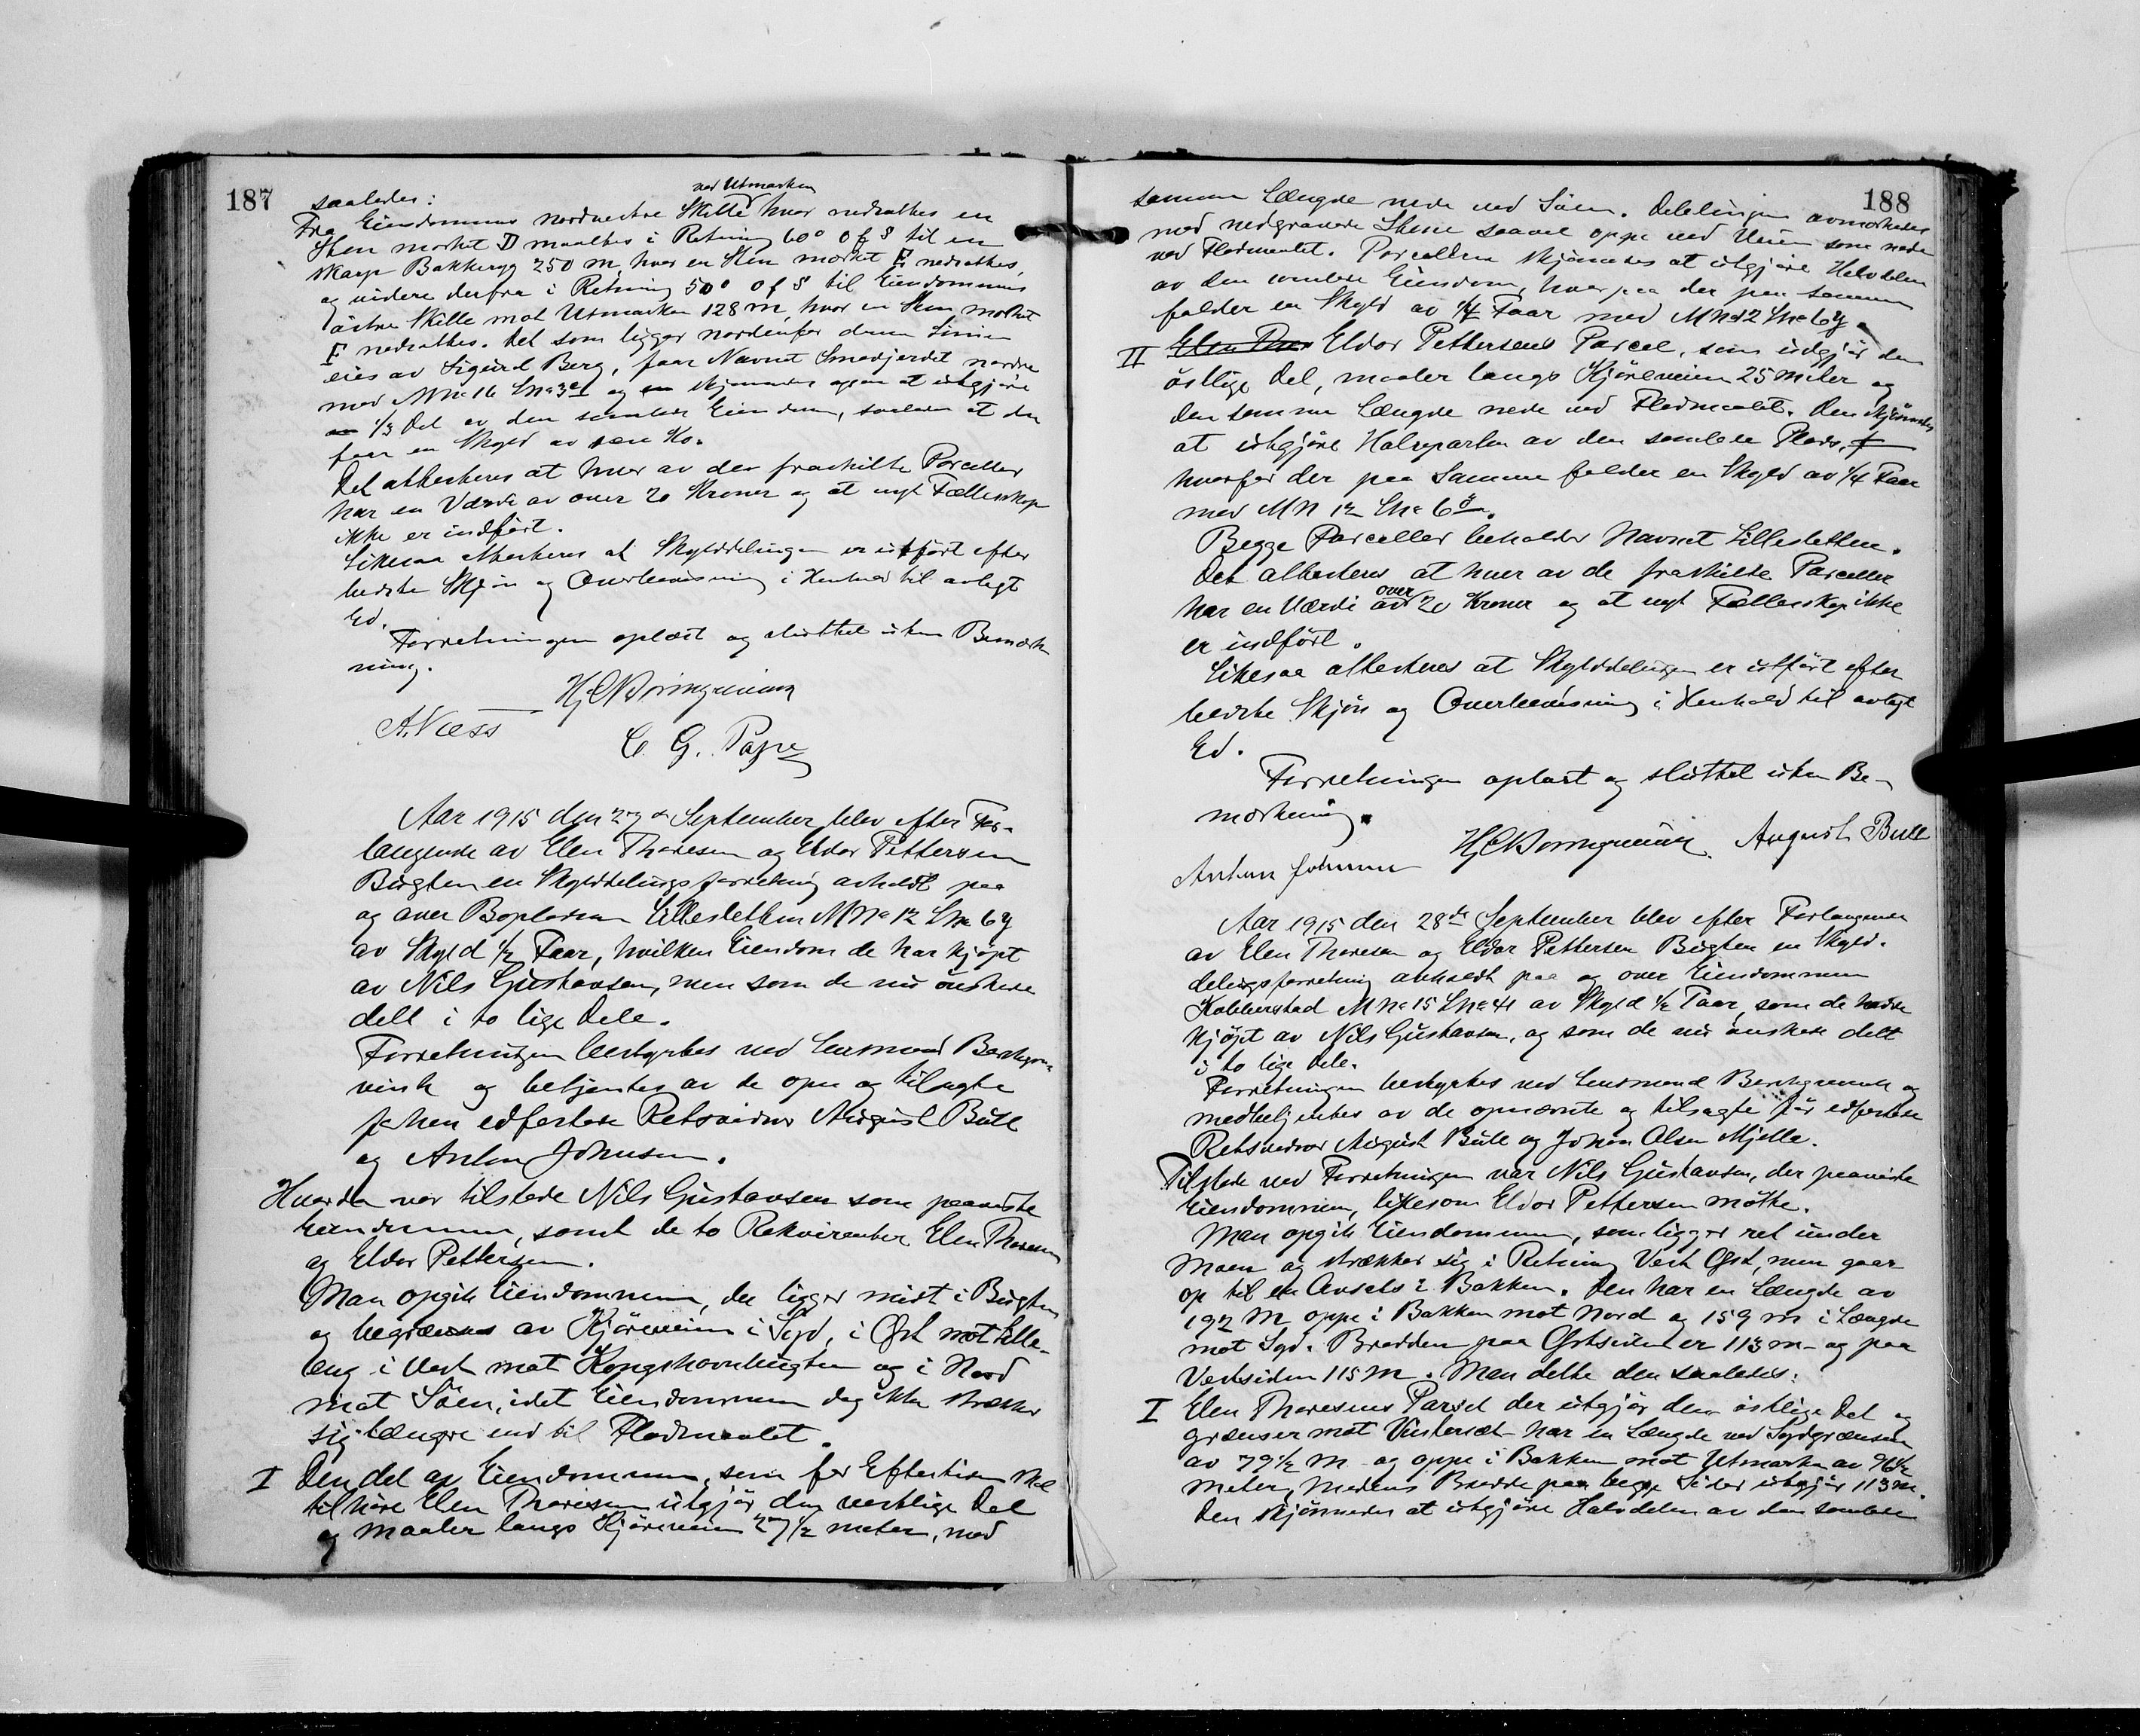 187
saaledes:
ved Utmarken
Fra Eiendommens nordvestre Skille hvor nedsattes en
Sten merket D maaltes i Retning 60° O f S til en
skarp Bakkeryg 250 m, hvor en Sten merket E nedsattes,
og videre derfra i Retning 50° O f S til Eiendommens
østre Skille mot Utmarken 128 m, hvor en Sten merket
F nedsattes. Det som ligger nordenfor denne Linien
eies av Sigurd Berg, faar Navnet Smedjerdet nordre
med MNo 16 LNo 3 og skjønnedes at utgjøre
1/3 Del av den samlede Eiendom, saaledes at den
faar en Skyld av Ko.
Det attesteres at hver av de fraskilte Parceller
har en Værdi av over 20 Kroner og at nyt Fællesskap
ikke er indført.
Likesaa attesteres at Skylddelingen er utført efter
bedste Skjøn og Overbevisning i Henhold til avlagt
Ed.
Forretningen oplæst og sluttet uten Bemærk
ning.
A. Næss
C. G. Pape
Aar 1915 den 27de September blev efter For-
langende av Elen Thoresen og Eldor Pettersen
Bugten en Skylddelingsforretning avholdt paa
og over Boplassen Lillesletten MNo 12 LNo 6y
av Skyld 1/2 Faar, hvilken Eiendom de har kjøpt
av Nils Gustavsen, men som de nu ønskede
delt i to lige Dele.
Forretningen bestyrtes ved Lensmand Borchgre-
vink og betjentes av de opn og tilsagte
edfestede Retsvidner August Bull
og Anton Johnsen.
Hvorda var tilstede Nils Gustavsen som paaviste
Eiendommen, samt de to Rekvirenter Elen Thoresen
og Eldor Pettersen.
Man opgik Eiendommen, der ligger midt i Bugten
og begrænses av Kjøreveien i Syd, i Øst mot Lille-
eng i Vest mot Kongshavnbugten og i Nord
mot Søen, idet Eiendommen dog ikke strækker
sig længre end til Flodmaalet.
I Den del av Eiendommen, som for Eftertiden skal
tilhøre Elen Thoresen utgjør den vestlige Del
og maaler langs Kjøreveien 27 1/2 meter, med
188
samme Længde nede ved Søen. Delelinjen avmerkedes
med nedgravede Stene saavel oppe ved Veien som nede
ved Flodmaalet. Parcellen skjønnedes at utgjøre Halvdelen
av den samlede Eiendom, hvorpaa der paa samme
falder en Skyld av 1/4 Faar med MNo 12 LNo 6y.
II Eldor Pettersens Parcel, som udgjør den
østlige Del, maaler langs Kjøreveien 25 meter og
den samme Længde nede ved Flodmaalet. Den skjønnedes
at utgjøre Halvparten av den samlede Plads,
hvorfor der paa Samme falder en Skyld av 1/4 Faar
med MN 12 LNo 6ö.
Begge Parceller beholder Navnet Lillesletten.
Det attesteres at hver av de fraskilte Parceller
har en Værdi av over 20 Kroner og at nyt Fællesskap ikke
er indført.
Likesaa attesteres at Skylddelingen er utført efter
bedste Skjøn og Overbevisning i Henhold til avlagt
Ed.
Forretningen oplæst og sluttet uten Be-
merkning.
August Bull
Anton Johnsen
Aar 1915 den 28de September blev efter Forlangende
av Elen Thoresen og Eldor Pettersen Bugten en Skyld-
delingsforretning avholdt paa og over Eiendommen
Kobberstad MNo 15 LNo 41 av Skyld 1/2 Faar, som de hadde
kjøpt av Nils Gustavsen, og som de nu ønskede delt
i to lige Dele.
Forretningen bestyrtes ved Lensmand Borchgrevink og
medbetjentes av de opnævnte og tilsagte før edfestede
Retsvidner August Bull og Johan Olsen Mjelle.
Tilstede ved Forretningen var Nils Gustavsen, der paaviste
Eiendommen, likesom Eldor Pettersen møtte.
Man opgik Eiendommen, som ligger ret under
Moen og strækker sig i Retning Vest Øst, men gaar
op til en Avsats i Bakken. Den har en Længde av
192 M oppe i Bakken mot Nord og 159 m i Længde
mot Syd. Bredden paa Østsiden er 113 m og paa
Vestsiden 115 m. Man delte den saaledes:
I Elen Thoresens Parcel der utgjør den østlige Del og
grænser mot Vinterset har en Længde ved Sydgrænsen
av 79 1/2 m og oppe i Bakken mot Utmarken av 96 1/2
meter, medens Bredde paa begge Sider utgjør 113 m.
Den skjønnedes at utgjøre Halvdelen av den samlede